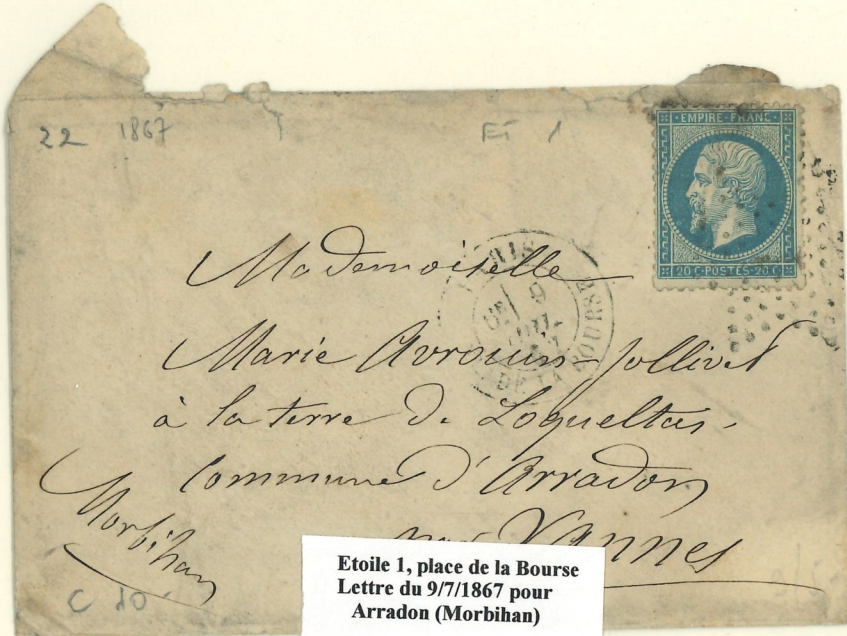 22 1867 Et 1
EMPIRE FRANC
20 C POSTES 20 C
PARIS
9
BOURSE
Mademoiselle
Marie Avrouin-Jollivet
à la terre de Loqueltas.
Commune d'Arradon
Vannes
Morbihan
C 10
Etoile 1, place de la Bourse
Lettre du 9/7/1867 pour
Arradon (Morbihan)